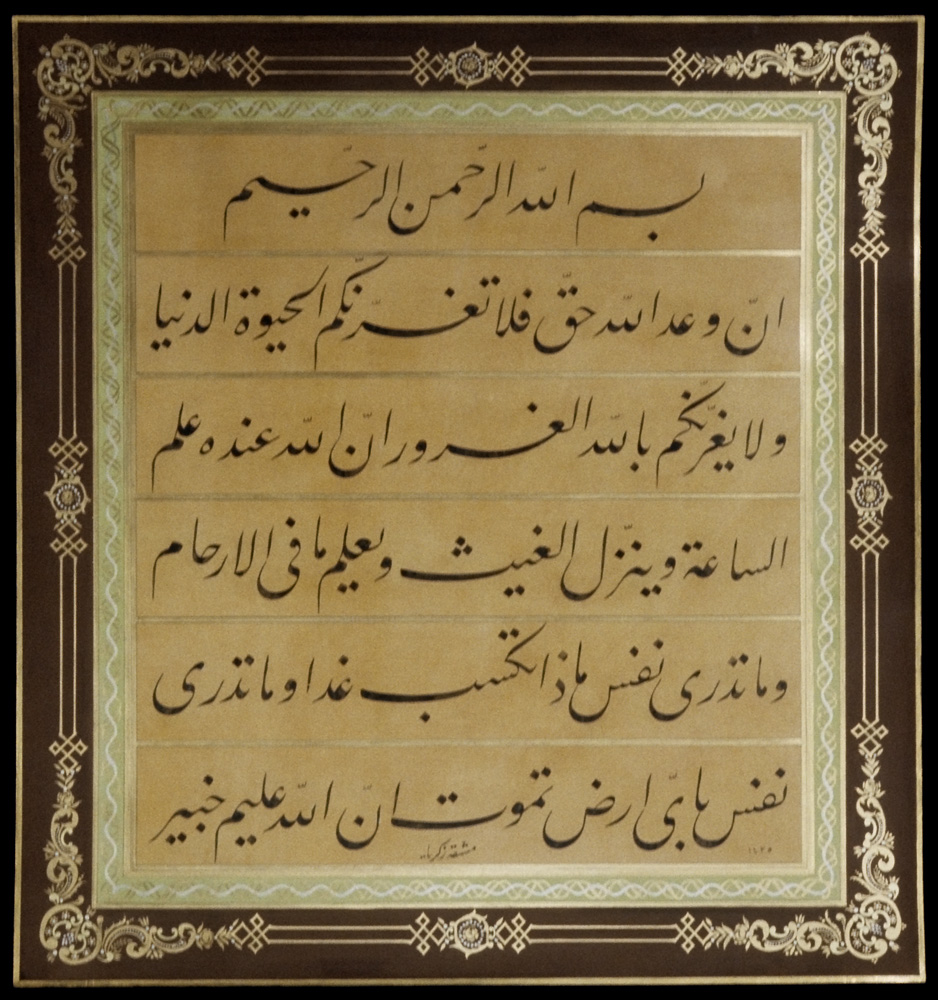 بسم الله الرحمن الرحيم
انّ وعد الله حقّ فلا تغرّنّكم الحيوة الدنيا
ولا يغرّنّكم بالله الغرور انّ الله عنده علم
الساعة وينزّل الغيث ويعلم ما فى الارحام
وما تدرى نفس ماذا تكسب غدا وما تدرى
نفس باىّ ارض تموت انّ الله عليم خبير
مشقه زكريا